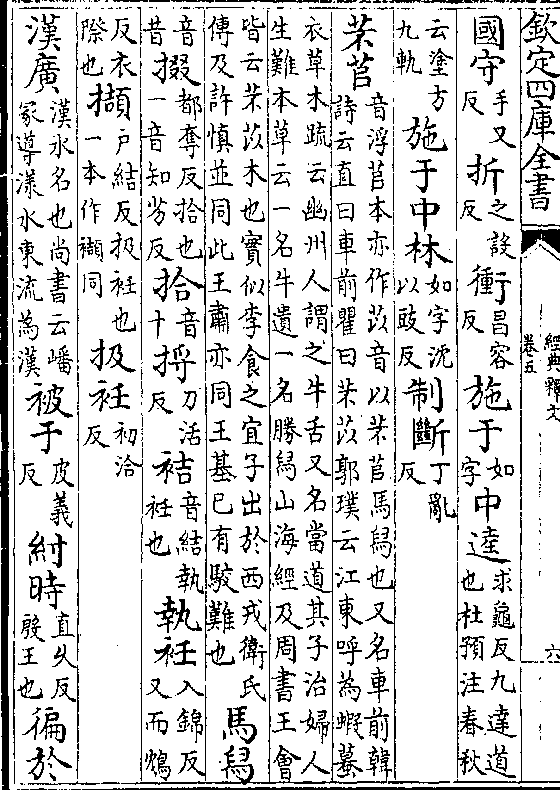 欽定四庫全書 經典釋文 卷五 六
國守手又反折之設反衝昌容反施于如字中逵求龜反九達道也杜預注春秋
云塗方九軌施于中林如字沈以豉反制斷丁亂反
芣苢音浮苢本亦作苡音以芣苢馬舄也又名車前韓詩云直曰車前瞿曰芣苡郭璞云江東呼為蝦蟇
衣草木疏云幽州人謂之牛舌又名當道其子治婦人生難本草云一名牛遺一名勝舄山海經及周書王會
皆云芣苡木也實似李食之宜子出於西戎衛氏傳及許慎並同此王肅亦同王基已有駮難也馬舄
音昔掇都奪反拾也一音知劣反拾音十捋刀活反袺音結執衽也執衽入錦反又而鴆
反衣際也擷戶結反扱衽也一本作襭同扱衽初洽反
漢廣漢水名也尚書云嶓冢導漾水東流為漢被于皮義反紂時直久反殷王也徧於